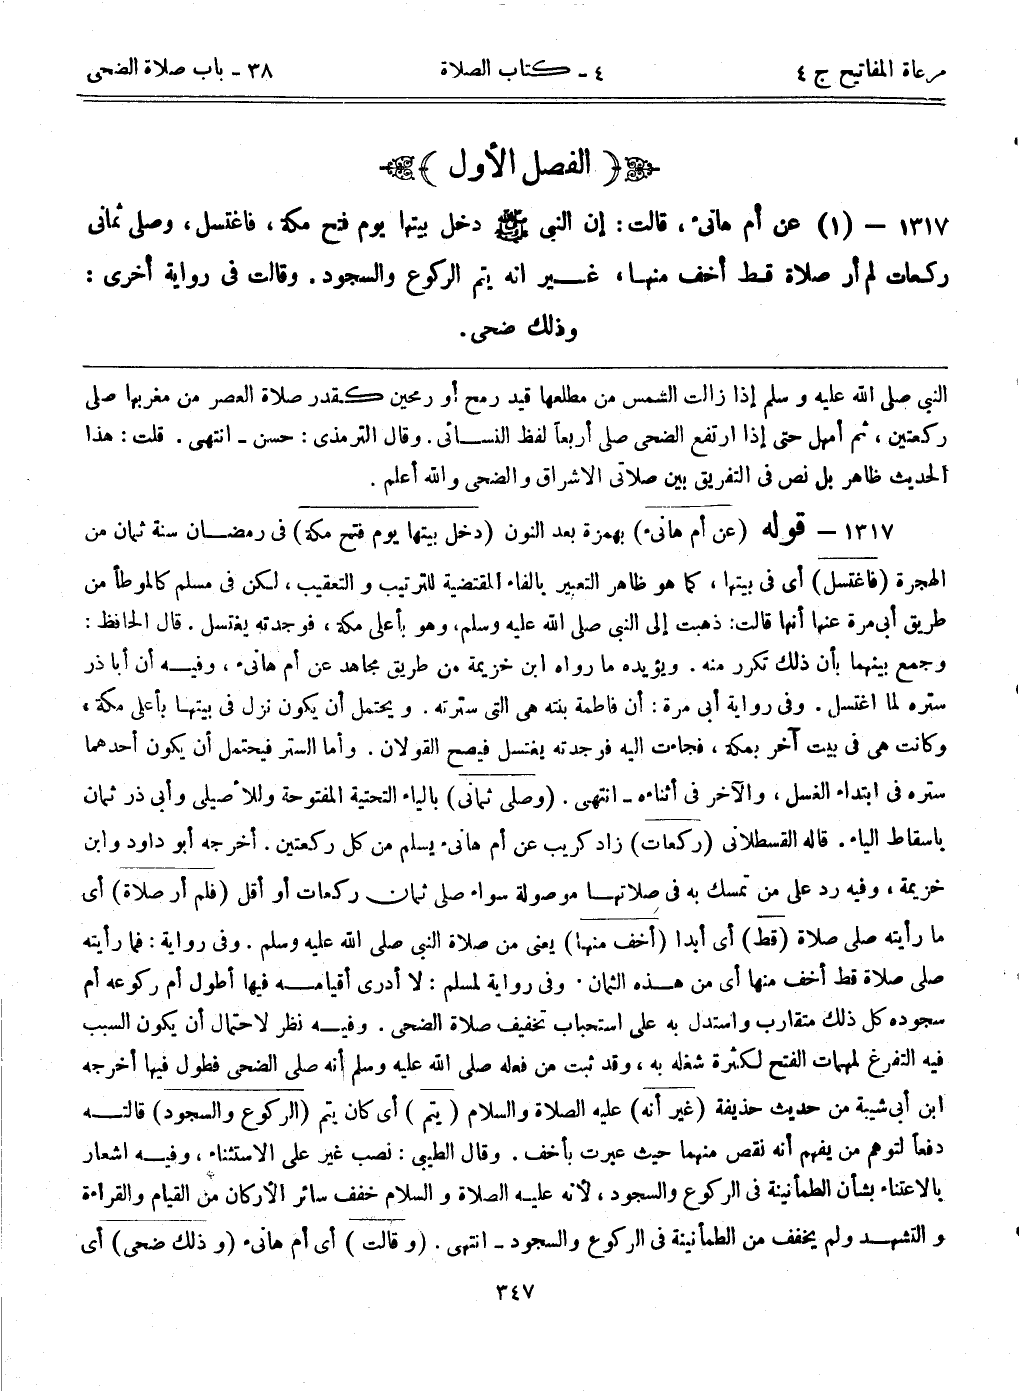 مرعاة المفاتيح ج ٤    ٤ ـ كتاب الصلاة    ٣٨ ـ باب صلاة الضحى
﴿ الفصل الأول ﴾
١٣١٧ — (١) عن أم هانئ، قالت: إن النبي ﷺ دخل بيتها يوم فتح مكة، فاغتسل، وصلى ثمانى
ركعات لم أر صلاة قط أخف منها، غير انه يتم الركوع والسجود. وقالت فى رواية أخرى:
وذلك ضحى.
النبي صلى الله عليه و سلم إذا زالت الشمس من مطلعها قيد رمح أو رمحين كقدر صلاة العصر من مغربها صلى
ركعتين، ثم أمهل حتى إذا ارتفع الضحى صلى أربعاً لفظ النسائى. وقال الترمذى: حسن ـ انتهى. قلت: هذا
الحديث ظاهر بل نص فى التفريق بين صلاتى الاشراق والضحى والله أعلم.
١٣١٧ — قوله (عن أم هانئ) بهمزة بعد النون (دخل بيتها يوم فتح مكة) فى رمضان سنة ثمان من
الهجرة (فاغتسل) أى فى بيتها، كما هو ظاهر التعبير بالفاء المقتضية للترتيب و التعقيب، لكن فى مسلم كالموطأ من
طريق أبى مرة عنها أنها قالت: ذهبت إلى النبي صلى الله عليه وسلم، وهو بأعلى مكة، فوجدته يغتسل. قال الحافظ:
وجمع بينهما بأن ذلك تكرر منه. ويؤيده ما رواه ابن خزيمة من طريق مجاهد عن أم هانئ، وفيه أن أبا ذر
ستره لما اغتسل. وفى رواية أبى مرة: أن فاطمة بنته هى التى سترته. و يحتمل أن يكون نزل فى بيتها بأعلى مكة،
وكانت هى فى بيت آخر بمكة، فجاءت اليه فوجدته يغتسل فيصح القولان. وأما الستر فيحتمل أن يكون أحدهما
ستره فى ابتداء الغسل، والآخر فى أثناءه ـ انتهى. (وصلى ثمانى) بالياء التحتية المفتوحة وللأصيلى وأبى ذر ثمان
باسقاط الياء. قاله القسطلانى (ركعات) زاد كريب عن أم هانئ يسلم من كل ركعتين. أخرجه أبو داود وابن
خزيمة، وفيه رد على من تمسك به فى صلاتها موصولة سواء صلى ثمان ركعات أو أقل (فلم أر صلاة) أى
ما رأيته صلى صلاة (قط) أى أبدا (أخف منها) يعنى من صلاة النبي صلى الله عليه وسلم. وفى رواية: فما رأيته
صلى صلاة قط أخف منها أى من هذه الثمان. وفى رواية لمسلم: لا أدرى أقيامه فيها أطول أم ركوعه أم
سجوده كل ذلك متقارب واستدل به على استحباب تخفيف صلاة الضحى. وفيه نظر لاحتمال أن يكون السبب
فيه التفرغ لمهمات الفتح لكثرة شغله به، وقد ثبت من فعله صلى الله عليه وسلم أنه صلى الضحى فطول فيها أخرجه
ابن أبى شيبة من حديث حذيفة (غير أنه) عليه الصلاة والسلام (يتم) أى كان يتم (الركوع والسجود) قالته
دفعاً لتوهم من يفهم أنه نقص منهما حيث عبرت بأخف. وقال الطيبى: نصب غير على الاستثناء، وفيه اشعار
بالاعتناء بشأن الطمأنينة فى الركوع والسجود، لأنه عليه الصلاة و السلام خفف سائر الأركان من القيام والقراءة
و التشهد ولم يخفف من الطمأنينة فى الركوع والسجود ـ انتهى. (و قالت) أى أم هانئ (و ذلك ضحى) أى
٣٤٧